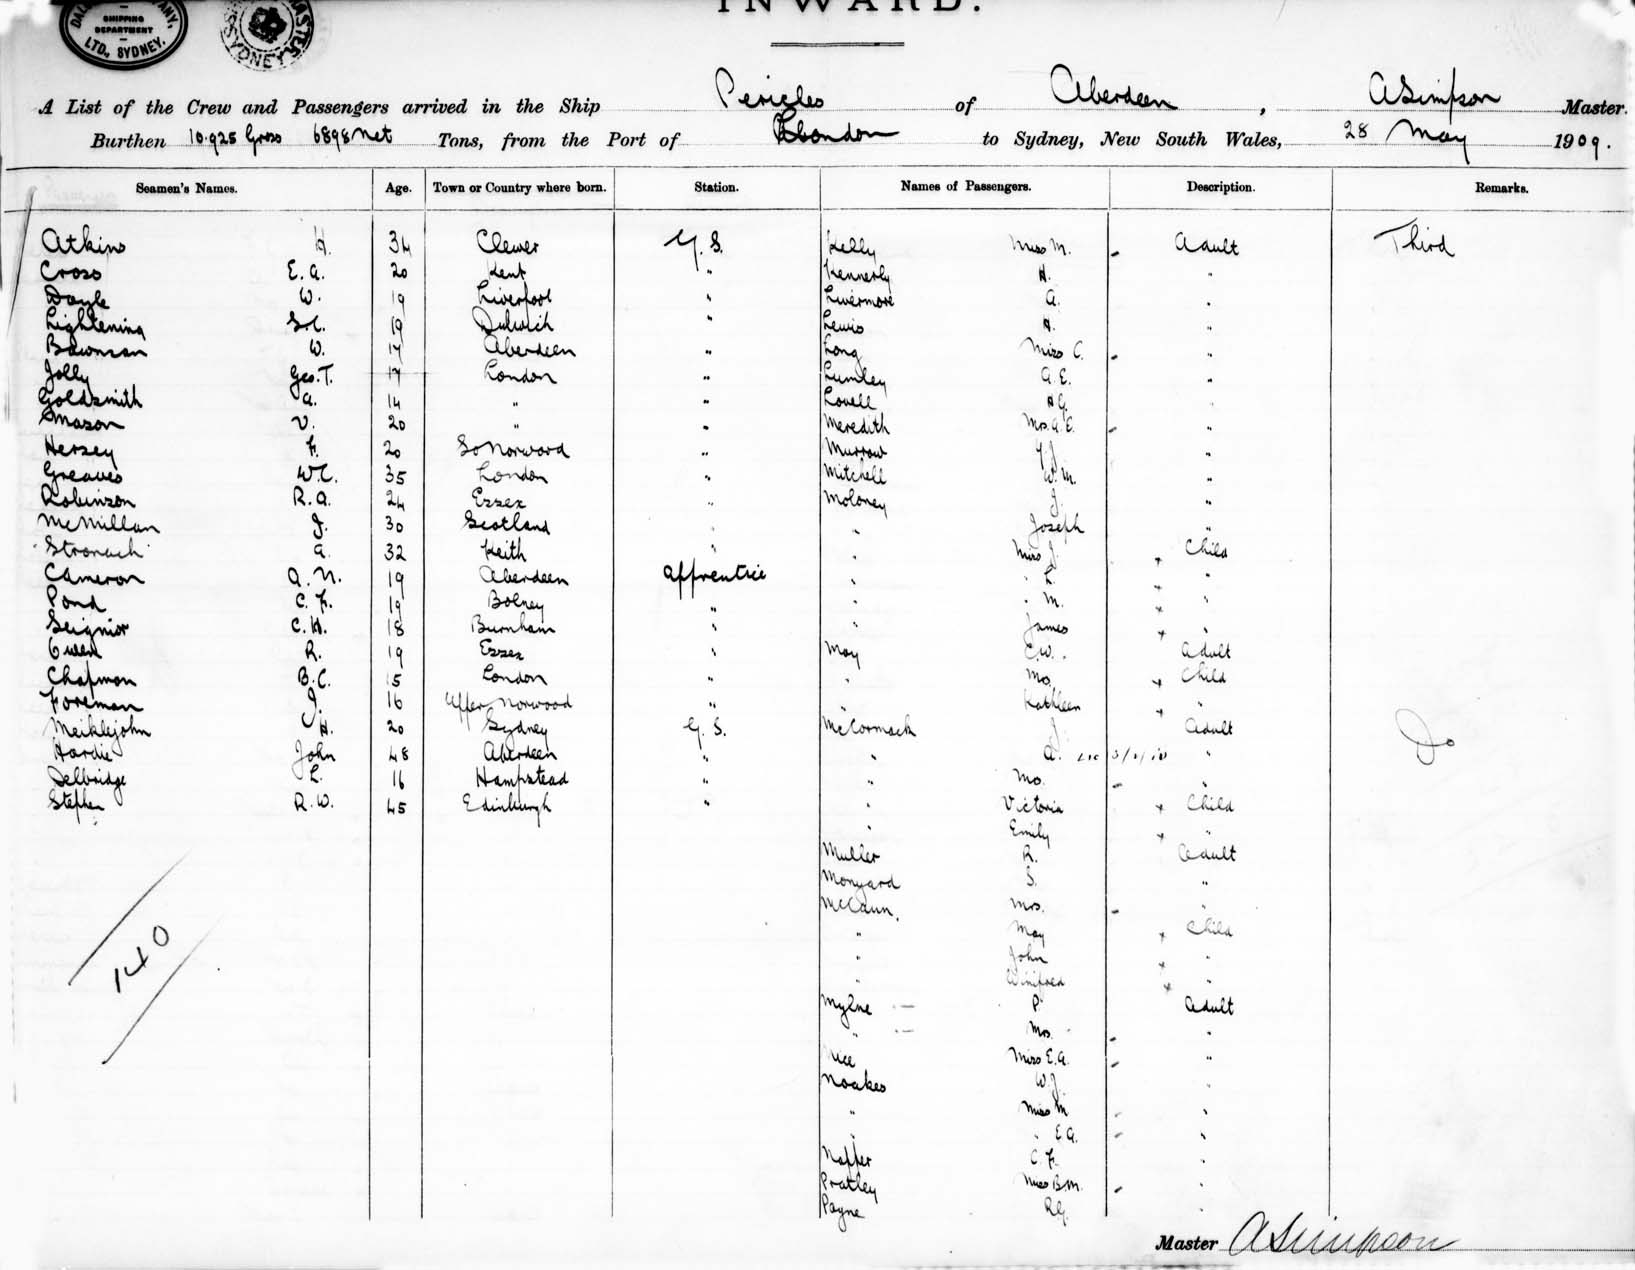 INWARD.
SHIPPING DEPARTMENT
LTD., SYDNEY.
SYDNEY
A List of the Crew and Passengers arrived in the Ship Pericles of Aberdeen, A Simpson Master.
Burthen 10.925 Gross 6898 Net Tons, from the Port of London to Sydney, New South Wales, 28 May 1909.
Seamen's Names. Age. Town or Country where born. Station. Names of Passengers. Description. Remarks.
Atkins H. 34 Clewer G. S. Kelly Miss M. Adult Third
Cross E. A. 20 Kent " Kennerly H. "
Doyle W. 19 Liverpool " Livermore A. "
Lightening 19 Dulwich " Lewis H. "
Bowman W. 17 Aberdeen " Long Miss C. "
Jolly Geo. T. 17 London " Lumley A. E. "
Goldsmith A. 14 " " Lovell "
Mason V. 20 " " Meredith Mrs. A. E. "
Hersey F. 20 So Norwood " Murrow "
Greaves W. C. 35 London " Mitchell W. M. "
Robinson R. A. 24 Essex " Moloney J. "
McMillan J. 30 Scotland " " Joseph "
Stronach A. 32 Keith " " Miss J. Child
Cameron A. N. 19 Aberdeen Apprentice " " L. "
Pond C. F. 19 Bolney " " " M. "
Seignior C. H. 18 Burnham " " James "
Owen R. 19 Essex " May C. W. Adult
Chapman B. C. 15 London " " Mrs. Child
Foreman J. 16 Upper Norwood " " Kathleen "
Meiklejohn H. 20 Sydney G. S. McCormack J. Adult Do
Hardie John 48 Aberdeen " " A. "
Delbridge L. 16 Hampstead " " Mrs. "
Stephen R. W. 45 Edinburgh " " Victoria Child
" Emily "
Muller R. Adult
Monyard S. "
McCaun. Mrs. "
" May Child
" John "
" Winifred "
140
Mylne P. Adult
" Mrs. "
Nice Miss E. A. "
Noakes W. J. "
" Miss M "
" " E A. "
Napper C. F. "
Pratley Miss B M. "
Payne R G. "
Master A Simpson